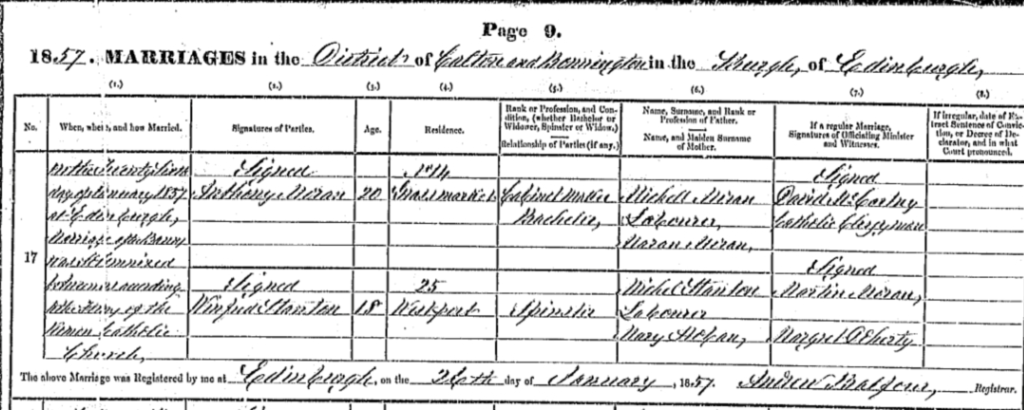 Page 9.
1857. MARRIAGES in the District of Calton and Bonnington in the Burgh, of Edinburgh,
(1.) (2.) (3.) (4.) (5.) (6.) (7.) (8.)
No. When, where, and how Married. Signatures of Parties. Age. Residence. Rank or Profession, and Condition, (whether Bachelor or Widower, Spinster or Widow.) Relationship of Parties (if any.) Name, Surname, and Rank or Profession of Father. Name, and Maiden Surname of Mother. If a regular Marriage, Signatures of Officiating Minister and Witnesses. If irregular, date of Extract Sentence of Conviction, or Decree of Declarator, and in what Court pronounced.
on the Signed No 14 Signed
day of January 1857 Anthony Miran 20 Grassmarket Cabinet Maker Michell Miran David McCartny
at Edinburgh, Bachelor, Labourer, Catholic Clergyman
Marriage after Banns Miran,
17 was Solemnized Signed
between us according Signed 25 Michel Stanton Martin Miran,
to the Form of the Winfred Stanton 18 Westport Spinster Labourer
Roman Catholic Mary Margret
Church,
The above Marriage was Registered by me at Edinburgh, on the 26th day of January, 1857. Andrew Balfour, Registrar.